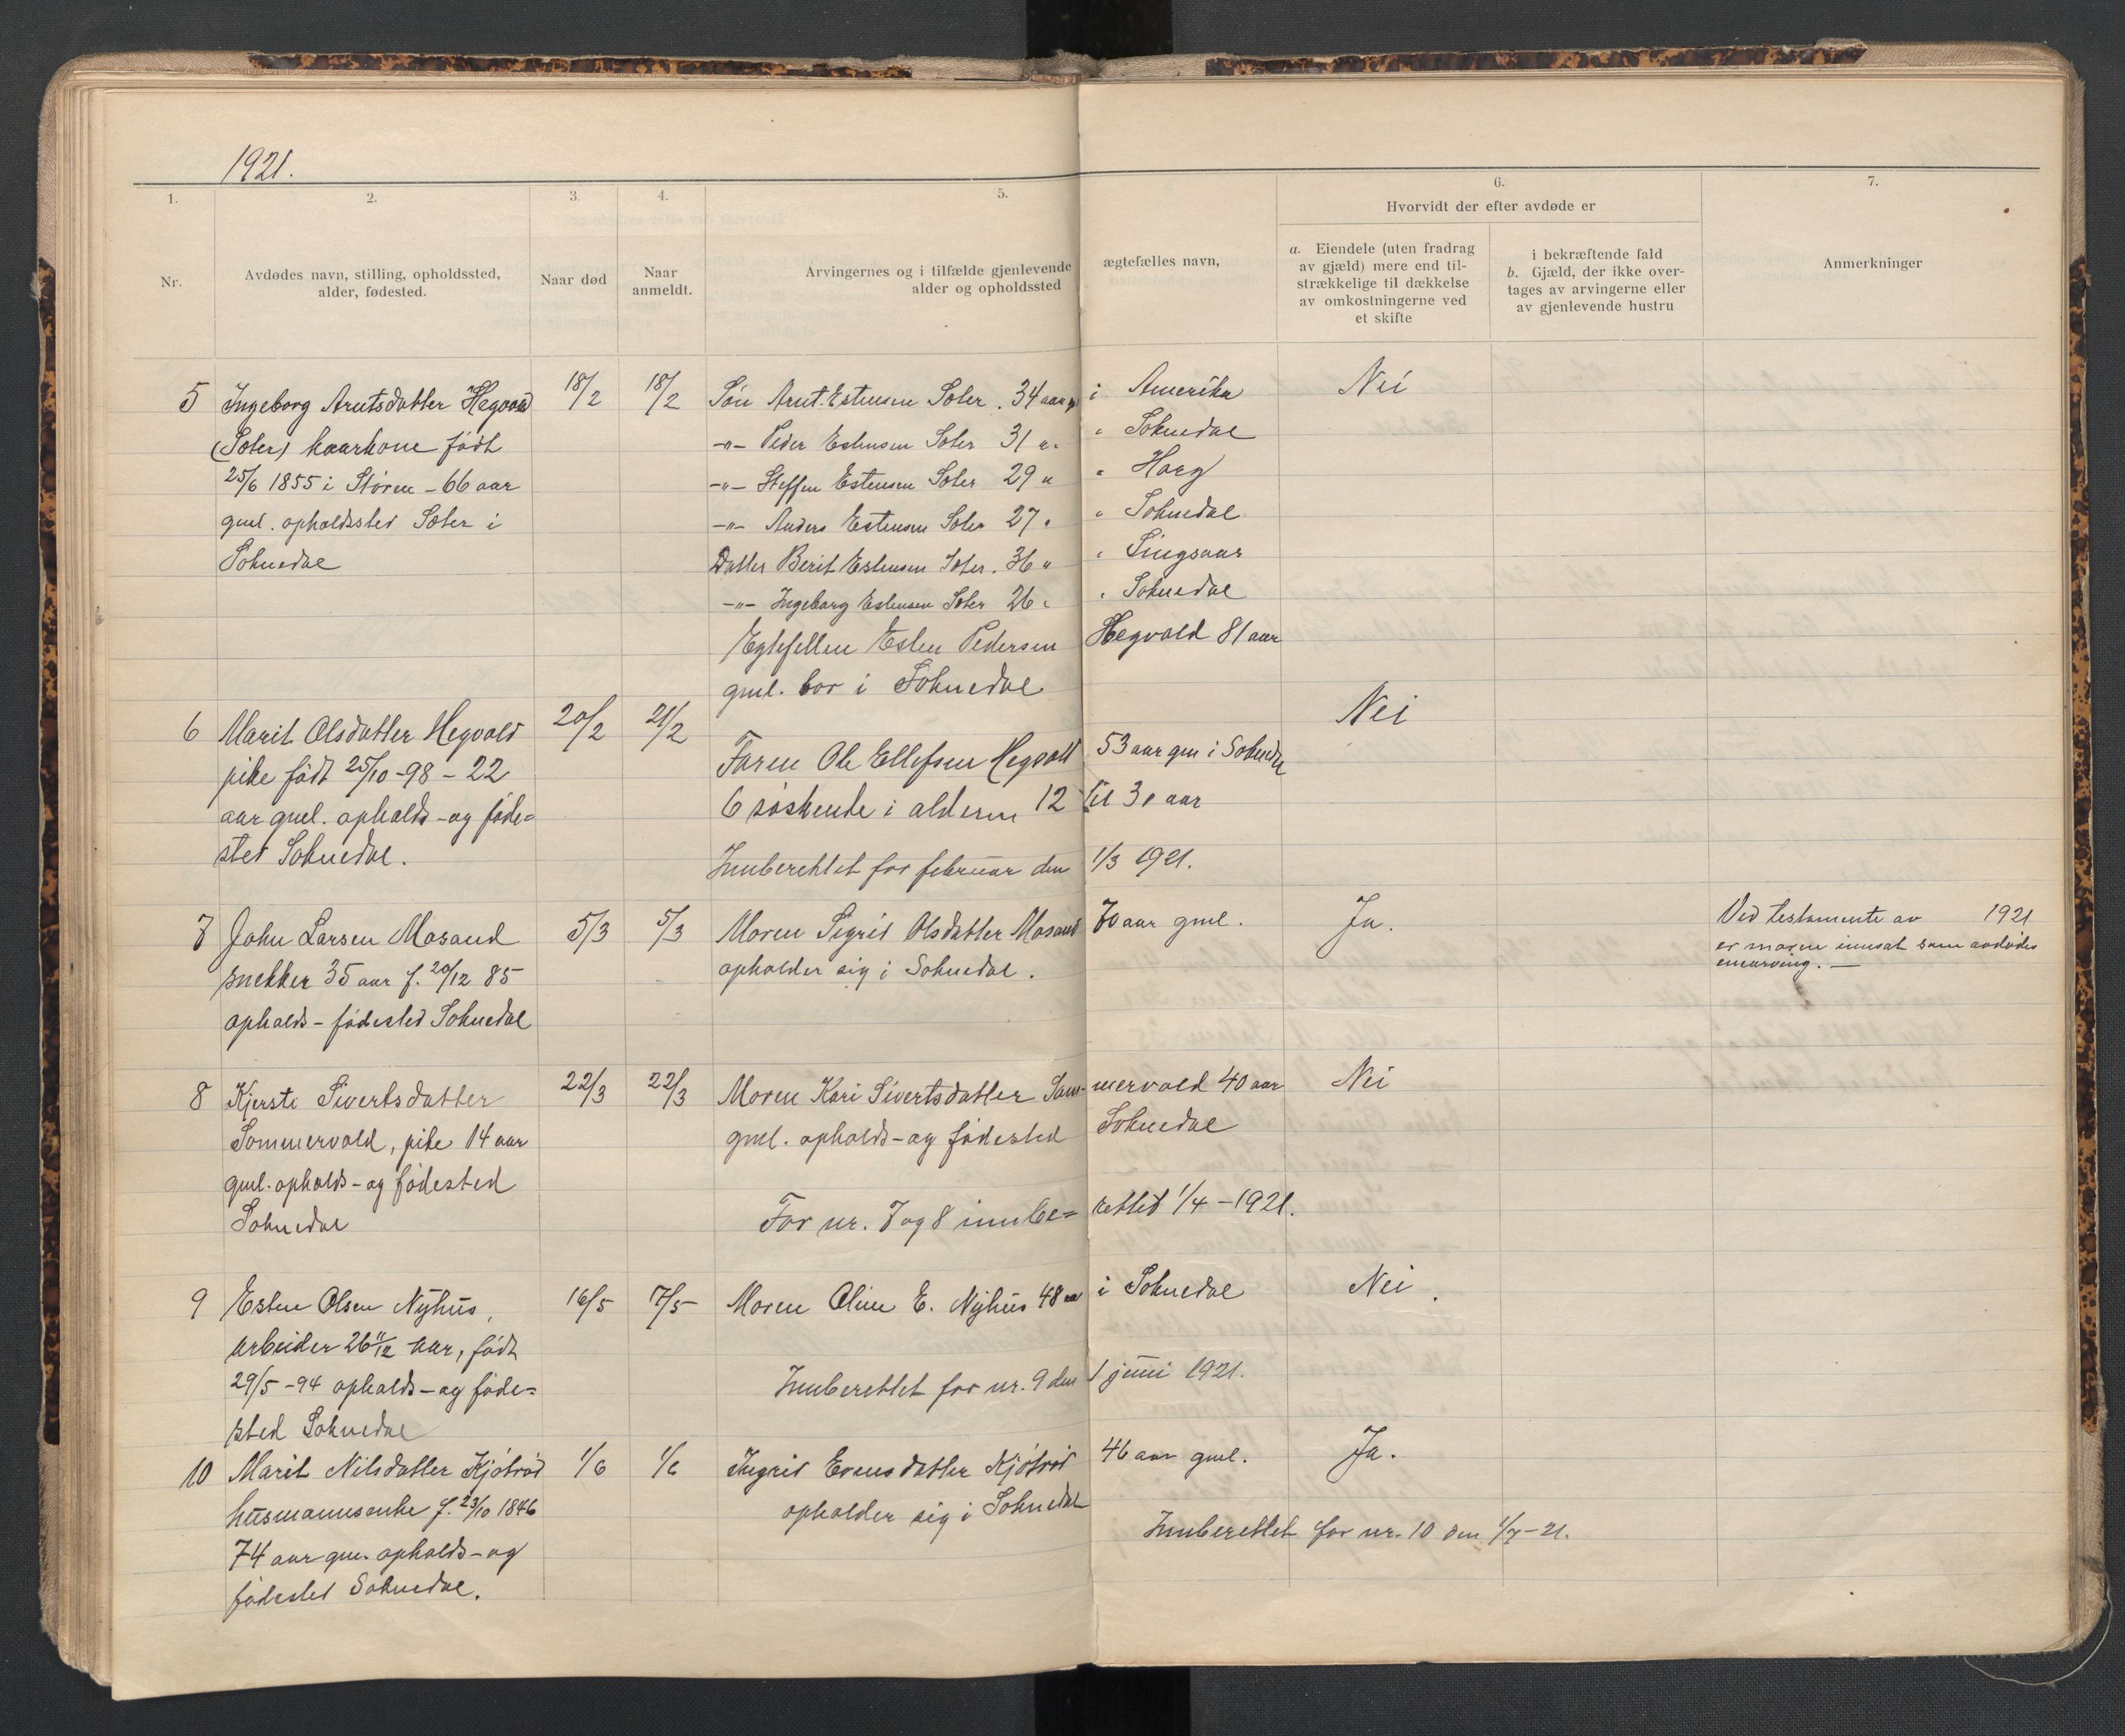 1921.
1.
2.
3.
4.
5.
6.
7.
Nr.
Avdødes navn, stilling, opholdssted,
alder, fødested.
Naar død
Naar
anmeldt.
Arvingernes og i tilfælde gjenlevende ægtefælles navn,
alder og opholdssted
Hvorvidt der efter avdøde er
a. Eiendele (uten fradrag
av gjæld) mere end til-
strækkelige til dækkelse
av omkostningerne ved
et skifte
i bekræftende fald
b. Gjæld, der ikke over-
tages av arvingerne eller
av gjenlevende hustru
Anmerkninger
5 Ingeborg Arntsdatter Hegvold
(Soter) kaarkone født
25/6 1855 i Støren - 66 aar
gml. opholdssted Soter i
Soknedal
18/2
18/2
Søn Arnt Estensen Soter. 34 aar g i Amerika
-"- Peder Estensen Soter 31 ". " Soknedal
-"- Steffen Estensen Soter 29 " " Horg
-"- Anders Estensen Soter 27 " " Soknedal
Datter Berit Estensen Soter. 36 " " Singsaas
-"- Ingeborg Estensen Soter 26 " " Soknedal
Egtefellen Esten Pedersen Hegvold 81 aar
gml. bor i Soknedal
Nei
6 Marit Olsdatter Hegvold
pike født 25/10 -98 - 22
aar gml. opholds- og føde=
sted Soknedal.
20/2
21/2
Faren Ole Ellefsen Hegvold 53 aar gm i Soknedal
6 søskende i alderen 12 til 30 aar
Nei
Innberettet for februar den 1/3 1921.
7 John Larsen Mosand
snekker 35 aar f. 20/12 85
opholds- fødested Soknedal
5/3
5/3
Moren Sigrid Olsdatter Mosand 70 aar gml.
opholder sig i Soknedal.
Ja.
Ved testamente av 1921
er moren innsat som avdødes
enearving. -
8 Kjersti Sivertsdatter
Sommervold, pike 14 aar
gml. opholds- og fødested
Soknedal
22/3
22/3
Moren Kari Sivertsdatter Som-mervold 40 aar
gml. opholds- og fødested Soknedal
Nei
For nr. 7 og 8 innbe= rettet 1/4 - 1921.
9 Esten Olsen Nyhus,
arbeider 26 11/12 aar, født
29/5 -94 opholds- og føde=
sted Soknedal
16/5
7/5
Moren Oline E. Nyhus 48 aar i Soknedal
Nei.
Innberettet for nr. 9 den 1 juni 1921.
10 Marit Nilsdatter Kjøtrød
husmannsenke f. 23/10 1846
74 aar gm. opholds- og
fødested Soknedal.
1/6
1/6
Ingrid Evensdatter Kjøtrød 46 aar gml.
opholder sig i Soknedal
Ja.
Innberettet for nr. 10 den 1/7 - 21.